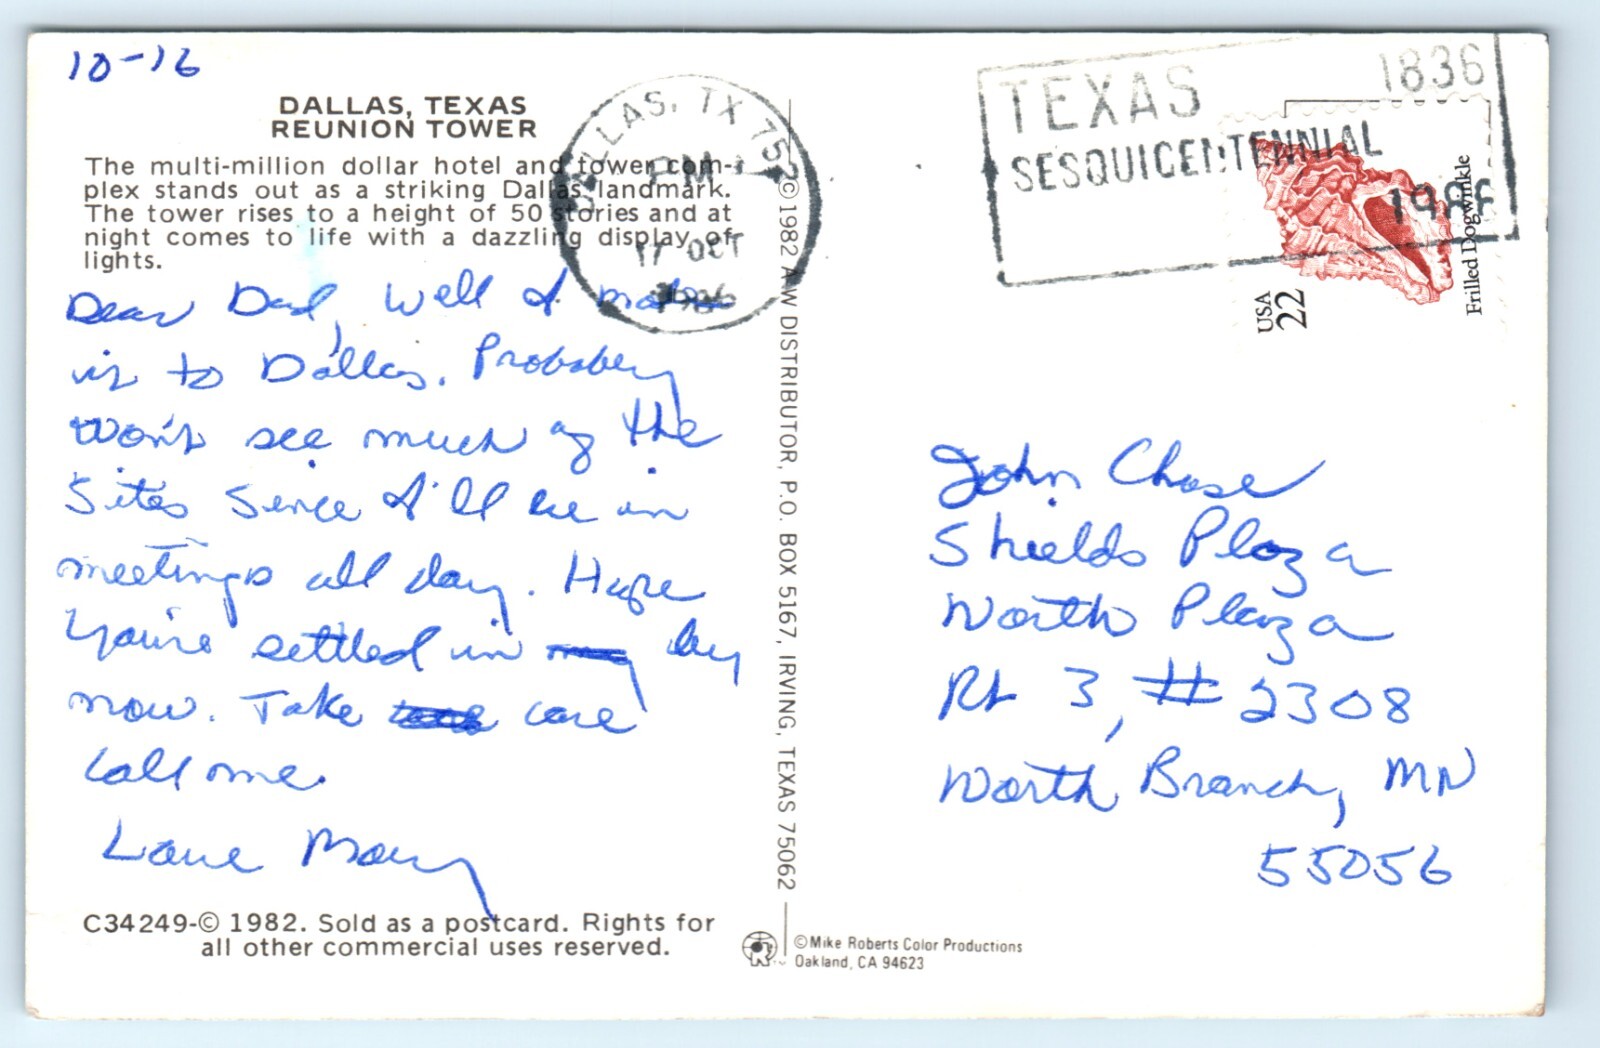 10-16
DALLAS, TEXAS
REUNION TOWER
The multi-million dollar hotel and tower com-
plex stands out as a striking Dallas landmark.
The tower rises to a height of 50 stories and at
night comes to life with a dazzling display of
lights.
Dear Dad, Well I made
it to Dallas. Probabley
Won't see much of the
Sites Since I'll be in
meetings all day. Hope
You're settled in by
now. Take care
Call me.
Love Mary
C34249-© 1982. Sold as a postcard. Rights for
all other commercial uses reserved.
© 1982 A-W DISTRIBUTOR, P.O. BOX 5167, IRVING, TEXAS 75062
©Mike Roberts Color Productions
Oakland, CA 94623
DALLAS, TX 752
PM
17 OCT
1986
TEXAS 1836
SESQUICENTENNIAL
1986
USA
22
Frilled Dogwinkle
John Chase
Shields Plaza
North Plaza
Rt 3, # 2308
North Branch, MN
55056